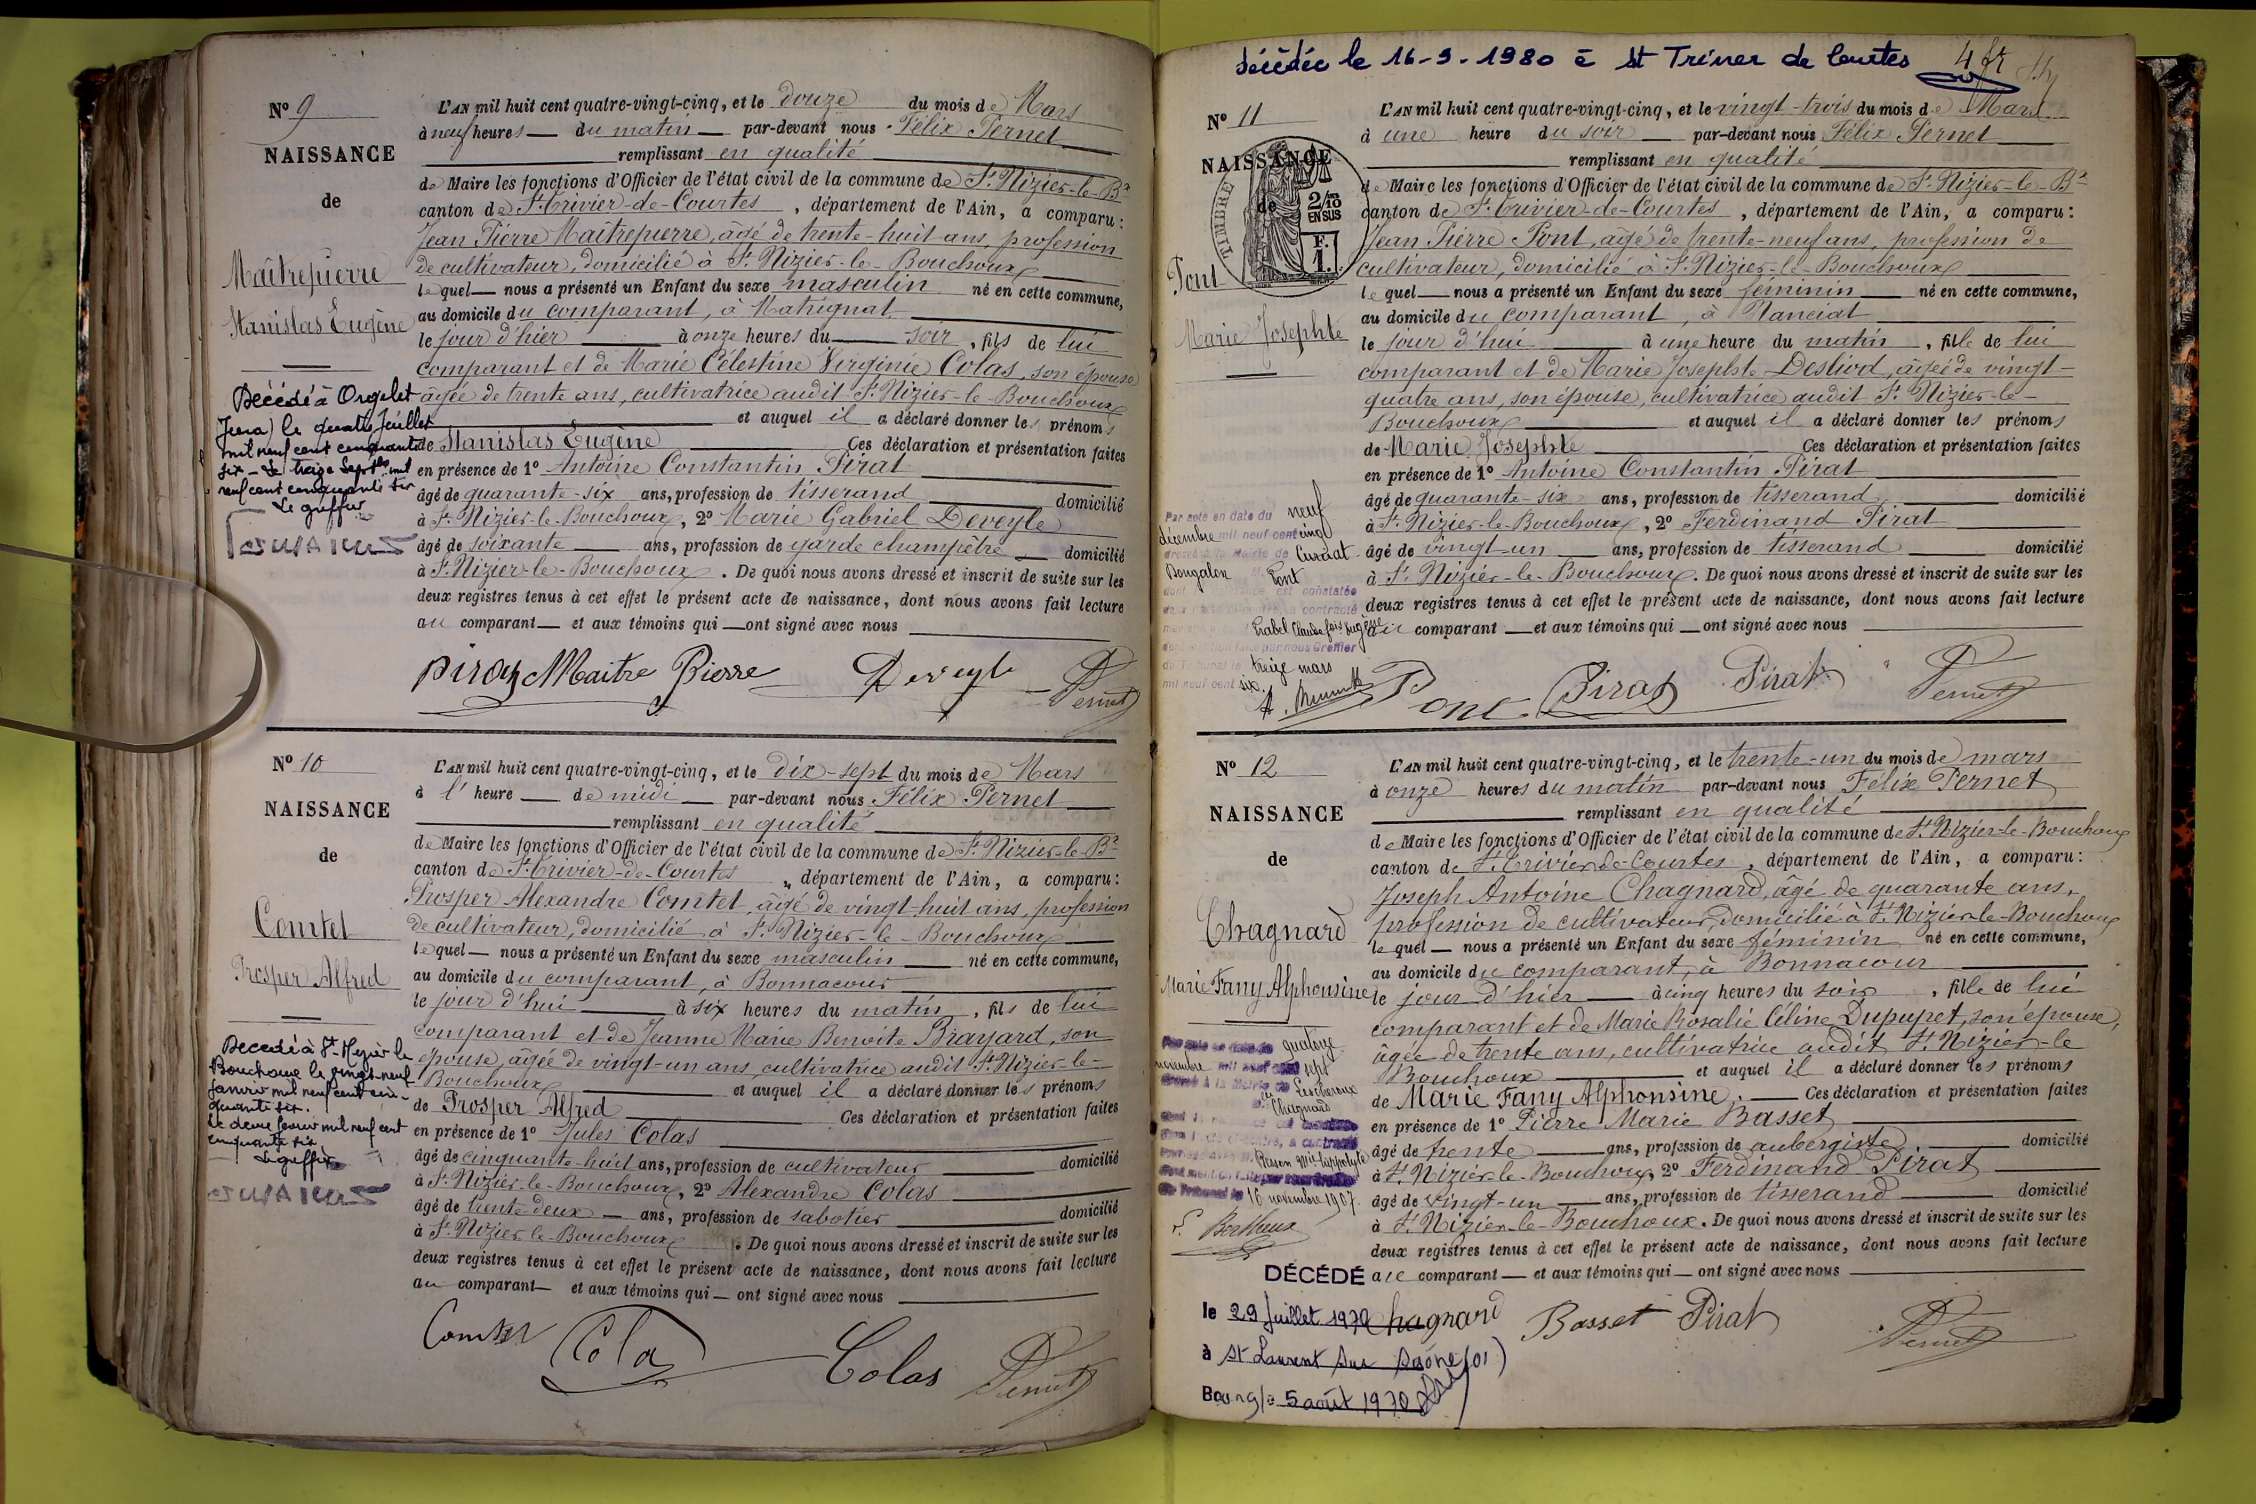 N° 9
NAISSANCE
de
Maîtrepierre
Stanislas Eugène
Décédé à Orgelet
(Jura) le quatre Juillet
mil neuf cent cinquante
six - Le treize Septbre mil
neuf cent cinquante six
Le greffier
L'AN mil huit cent quatre-vingt-cinq, et le douze du mois de Mars
à neuf heures du matin par-devant nous Félix Pernet
remplissant en qualité
de Maire les fonctions d'Officier de l'état civil de la commune de St Nizier-le-Bx
canton de St Trivier-de-Courtes, département de l'Ain, a comparu:
Jean Pierre Maîtrepierre, âgé de trente-huit ans, profession
de cultivateur, domicilié à St Nizier-le-Bouchoux
lequel nous a présenté un Enfant du sexe masculin né en cette commune,
au domicile du comparant, à Matrignat
le jour d'hier à onze heures du soir, fils de lui
comparant et de Marie Célestine Virginie Colas, son épouse
âgée de trente ans, cultivatrice audit St Nizier-le-Bouchoux
et auquel il a déclaré donner les prénoms
de Stanislas Eugène Ces déclaration et présentation faites
en présence de 1° Antoine Constantin Pirat
âgé de quarante-six ans, profession de tisserand domicilié
à St Nizier-le-Bouchoux, 2° Marie Gabriel Deveyle
âgé de soixante ans, profession de garde champêtre domicilié
à St Nizier-le-Bouchoux. De quoi nous avons dressé et inscrit de suite sur les
deux registres tenus à cet effet le présent acte de naissance, dont nous avons fait lecture
au comparant et aux témoins qui ont signé avec nous
Pirat Maitre Pierre Deveyle Pernet
N° 10
NAISSANCE
de
Comtet
Prosper Alfred
Décédé à St-Nizier le
Bouchoux le vingt-neuf
janvier mil neuf cent cin-
quante six.
Le deux février mil neuf cent
cinquante six
Le greffier
L'AN mil huit cent quatre-vingt-cinq, et le dix-sept du mois de Mars
à l'heure de midi par-devant nous Félix Pernet
remplissant en qualité
de Maire les fonctions d'Officier de l'état civil de la commune de St Nizier-le-Bx
canton de St Trivier-de-Courtes, département de l'Ain, a comparu:
Prosper Alexandre Comtet, âgé de vingt-huit ans, profession
de cultivateur, domicilié à St Nizier-le-Bouchoux
lequel nous a présenté un Enfant du sexe masculin né en cette commune,
au domicile du comparant, à Bonnacour
le jour d'hui à six heures du matin, fils de lui
comparant et de Jeanne Marie Benoite Brayard, son
épouse, âgée de vingt-un ans, cultivatrice audit St Nizier-le-
Bouchoux et auquel il a déclaré donner les prénoms
de Prosper Alfred Ces déclaration et présentation faites
en présence de 1° Jules Colas
âgé de cinquante-huit ans, profession de cultivateur domicilié
à St Nizier-le-Bouchoux, 2° Alexandre Colas
âgé de trente-deux ans, profession de sabotier domicilié
à St Nizier-le-Bouchoux. De quoi nous avons dressé et inscrit de suite sur les
deux registres tenus à cet effet le présent acte de naissance, dont nous avons fait lecture
au comparant et aux témoins qui ont signé avec nous
Comtet Cola Colas Pernet
décédée le 16-9-1980 à St Trivier de Courtes
N° 11
NAISSANCE
de
TIMBRE
2/10
EN SUS
F.
1.
Pont
Marie Josephte
Par acte en date du neuf
décembre mil neuf cent cinq
dressé à la Mairie de Curciat
Dongalon Pont
dont la naissance est constatée
contracté
Trabel Claude fois Eugène
par nous Greffier
du Tribunal le treize mars
mil neuf cent six.
L'AN mil huit cent quatre-vingt-cinq, et le vingt-trois du mois de Mars
à une heure du soir par-devant nous Félix Pernet
remplissant en qualité
de Maire les fonctions d'Officier de l'état civil de la commune de St Nizier-le-Bx
canton de St Trivier-de-Courtes, département de l'Ain, a comparu:
Jean Pierre Pont, âgé de trente-neuf ans, profession de
cultivateur, domicilié à St Nizier-le-Bouchoux
lequel nous a présenté un Enfant du sexe féminin né en cette commune,
au domicile du comparant, à Nanciat
le jour d'hui à une heure du matin, fille de lui
comparant et de Marie Josephte Desliod, âgée de vingt-
quatre ans, son épouse, cultivatrice audit St Nizier-le-
Bouchoux et auquel il a déclaré donner les prénoms
de Marie Josephte Ces déclaration et présentation faites
en présence de 1° Antoine Constantin Pirat
âgé de quarante-six ans, profession de tisserand domicilié
à St Nizier-le-Bouchoux, 2° Ferdinand Pirat
âgé de vingt-un ans, profession de tisserand domicilié
à St Nizier-le-Bouchoux. De quoi nous avons dressé et inscrit de suite sur les
deux registres tenus à cet effet le présent acte de naissance, dont nous avons fait lecture
au comparant et aux témoins qui ont signé avec nous
Pont Pirat Pirat Pernet
N° 12
NAISSANCE
de
Chagnard
Marie Fany Alphonsine
Par acte en date du quatorze
novembre mil neuf cent sept
dressé à la Mairie de Lescheroux
Chagnard
16 novembre 1907.
Berthoux
DÉCÉDÉ
le 29 Juillet 1970
à St Laurent sur Saône (01)
Bourg le 5 août 1970
L'AN mil huit cent quatre-vingt-cinq, et le trente-un du mois de mars
à onze heures du matin par-devant nous Félix Pernet
remplissant en qualité
de Maire les fonctions d'Officier de l'état civil de la commune de St Nizier-le-Bouchoux
canton de St Trivier-de-Courtes, département de l'Ain, a comparu:
Joseph Antoine Chagnard, âgé de quarante ans,
profession de cultivateur, domicilié à St Nizier-le-Bouchoux
lequel nous a présenté un Enfant du sexe féminin né en cette commune,
au domicile du comparant, à Bonnacour
le jour d'hier à cinq heures du soir, fille de lui
comparant et de Marie Rosalie Céline Dupupet, son épouse,
âgée de trente ans, cultivatrice audit St Nizier-le
Bouchoux et auquel il a déclaré donner les prénoms
de Marie Fany Alphonsine. Ces déclaration et présentation faites
en présence de 1° Pierre Marie Basset
âgé de trente ans, profession de aubergiste, domicilié
à St Nizier-le-Bouchoux, 2° Ferdinand Pirat
âgé de vingt-un ans, profession de tisserand domicilié
à St Nizier-le-Bouchoux. De quoi nous avons dressé et inscrit de suite sur les
deux registres tenus à cet effet le présent acte de naissance, dont nous avons fait lecture
au comparant et aux témoins qui ont signé avec nous
Chagnard Basset Pirat Pernet